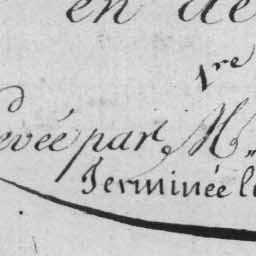 en de
1re
levée par M
Terminée le